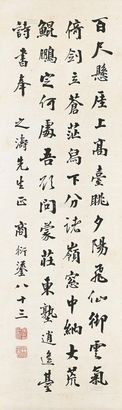 百尺懸厓上高臺眺夕陽飛仙御雲氣
倚劍立蒼茫鳥下分諸嶺窓中納大荒
鯤鵬定何處吾欲問蒙莊東塾逍遙臺
詩書奉 之濤先生正 商衍鎏八十三